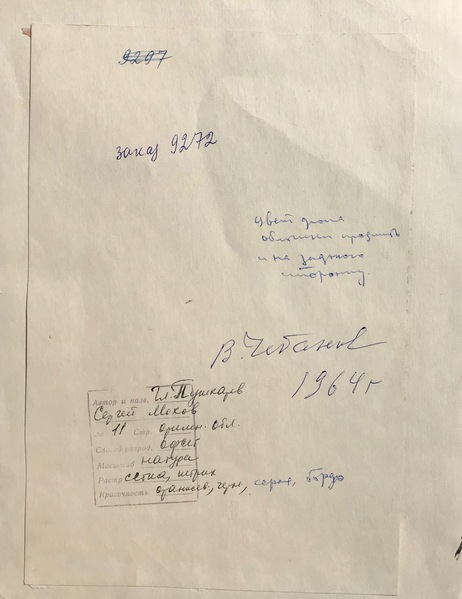 9297
заказ 9272
Цвет фона
обложки продлить
и на заднюю
сторонку.
В. Чебанов
1964 г
Автор и назв. Гл. Пушкарев
Сергей Мохов
№ 11 Стр. оригин. обл.
Способ воспр. офсет
Масштаб натура
Растр сетка, штрих
Красочность оранжев., черн., серая, бордо